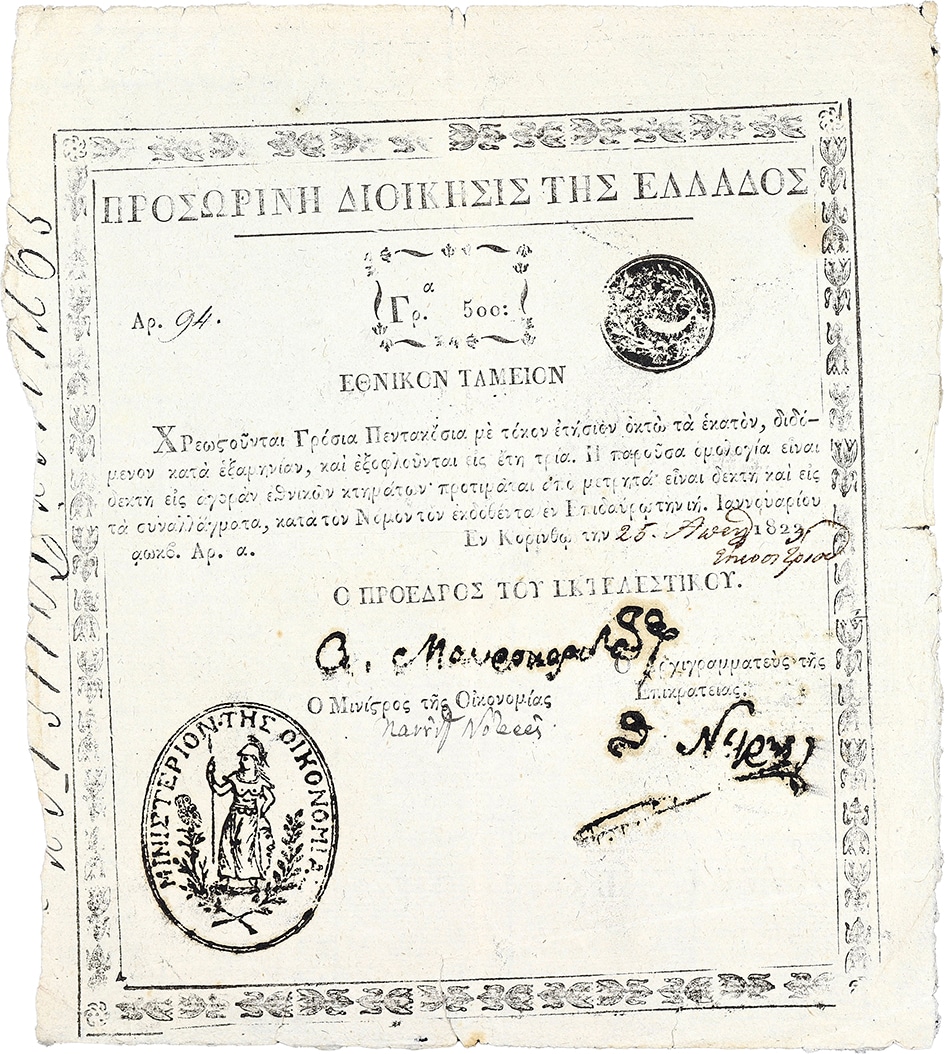 ΠΡΟΣΩΡΙΝΗ ΔΙΟΙΚΗΣΙΣ ΤΗΣ ΕΛΛΑΔΟΣ
Αρ. 94.
Γρ.α 500:
ΕΘΝΙΚΟΝ ΤΑΜΕΙΟΝ
Χρεωςοῦνται Γρόσια Πεντακόσια μὲ τόκον ἐτήσιον ὀκτὼ τὰ ἑκατὸν, διδό-
μενον κατὰ ἑξαμηνίαν, καὶ ἐξοφλοῦνται εἰς ἔτη τρία. Η παροῦσα ὁμολογία εἶναι
δεκτὴ εἰς ἀγορὰν ἐθνικῶν κτημάτων· προτιμᾶται ἀπὸ μετρητά· εἶναι δεκτὴ καὶ εἰς
τὰ συναλλάγματα, κατὰ τὸν Νόμον τὸν ἐκδοθέντα ἐν Επιδαύρῳ τὴν ιή. Ιαννουαρίου
αωκβ. Αρ. α.
Εν Κορίνθῳ τὴν 25. 1823
Ο ΠΡΟΕΔΡΟΣ ΤΟΥ ΕΚΤΕΛΕΣΤΙΚΟΥ.
Α. Μαυροκορδάτος
Ο Αρχιγραμματεὺς τῆς
Επικρατείας.
Ο Μινίςρος τῆς Οἰκονομίας
Νέγρης
ΜΙΝΙΣΤΕΡΙΟΝ·ΤΗΣ ΟΙΚΟΝΟΜΙΑΣ